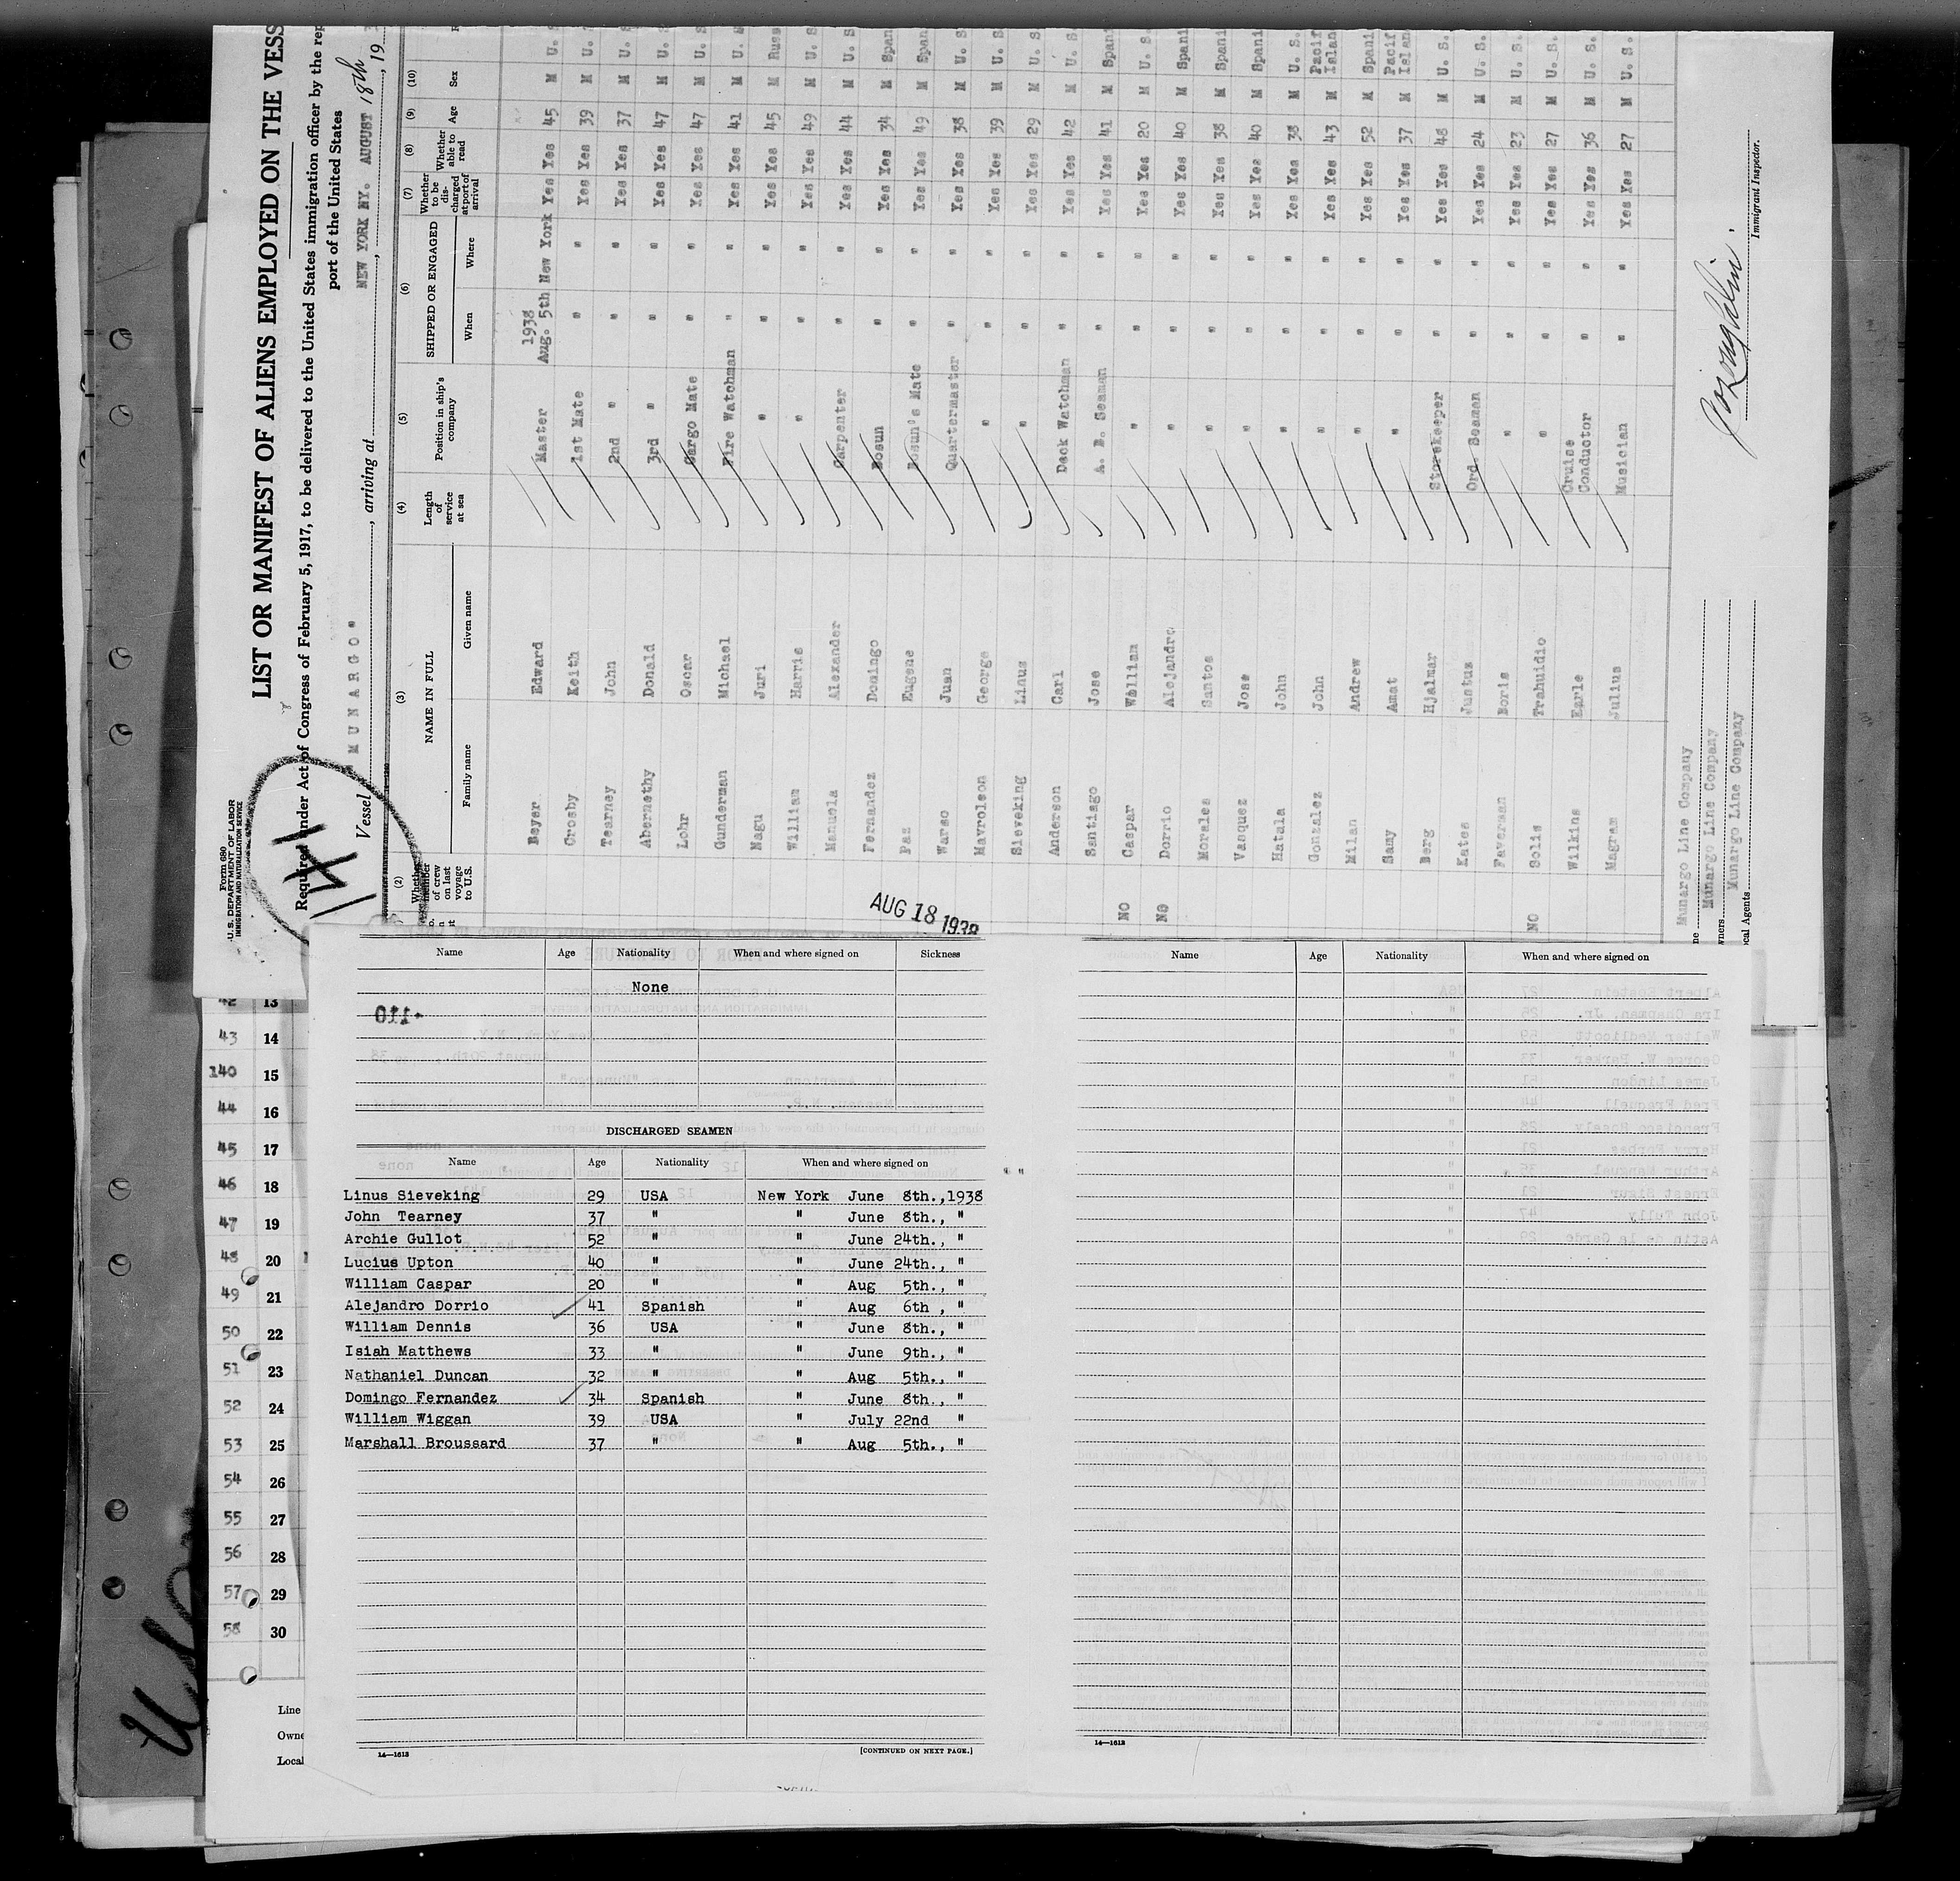 Form 680
U. S. DEPARTMENT OF LABOR
IMMIGRATION AND NATURALIZATION SERVICE
LIST OR MANIFEST OF ALIENS EMPLOYED ON THE VESS
Required under Act of Congress of February 5, 1917, to be delivered to the United States immigration officer by the rep
port of the United States
Vessel MUNARGO, arriving at NEW YORK NY. AUGUST 18th, 19
141
(2) (3) (4) (5) (6) (7) (8) (9) (10)
Whether member of crew on last voyage to U.S. NAME IN FULL Length of service at sea Position in ship's company SHIPPED OR ENGAGED Whether to be discharged at port of arrival Whether able to read Age Sex
Family name Given name When Where
Beyer Edward Master 1938 Aug. 5th New York Yes Yes 45 M U. S
Crosby Keith 1st Mate " " Yes Yes 39 M U. S
Tearney John 2nd " " " Yes Yes 37 M U. S
Abernethy Donald 3rd " " " Yes Yes 47 M U. S
Lohr Oscar Cargo Mate " " Yes Yes 47 M U. S
Gunderman Michael Fire Watchman " " Yes Yes 41 M U. S
Nagu Juri " " " Yes Yes 45 M Russ
William Harris " " " Yes Yes 49 M U. S
Manuela Alexander Carpenter " " Yes Yes 44 M U. S
Fernandez Domingo Bosun " " Yes Yes 34 M Span
Paz Eugene Bosun's Mate " " Yes Yes 49 M Span
Warso Juan Quartermaster " " Yes Yes 38 M U. S.
Mavroleon George " " " Yes Yes 39 M U. S.
Sieveking Linus " " " Yes Yes 29 M U. S
Anderson Carl Deck Watchman " " Yes Yes 42 M U. S.
Santiago Jose A. B. Seaman " " Yes Yes 41 M Spani
NO Caspar William " " " Yes Yes 20 M U. S.
NO Dorrio Alejandro " " " Yes Yes 40 M Spani
Morales Santos " " " Yes Yes 38 M Spani
Vasquez Jose " " " Yes Yes 40 M Spani
Hatala John " " " Yes Yes 38 M U. S.
Gonzalez John " " " Yes Yes 43 M Pacif Islan
Milan Andrew " " " Yes Yes 52 M Spani
Samy Amat " " " Yes Yes 37 M Pacif Islan
Berg Hjalmar Storekeeper " " Yes Yes 48 M U. S.
Kates Justuz Ord. Seaman " " Yes Yes 24 M U. S.
Faverman Boris " " " Yes Yes 23 M U. S.
NO Solis Trahuidio " " " Yes Yes 27 M U. S.
Wilkins Earle Cruise Conductor " " Yes Yes 36 M U. S.
Magram Julius Musician " " Yes Yes 27 M U. S.
Munargo Line Company
wners Munargo Line Company
ocal Agents Munargo Line Company
Immigrant Inspector.
AUG 18 1938
Name Age Nationality When and where signed on Sickness
None
110
DISCHARGED SEAMEN
Name Age Nationality When and where signed on
Linus Sieveking 29 USA New York June 8th.,1938
John Tearney 37 " " June 8th., "
Archie Gullot 52 " " June 24th., "
Lucius Upton 40 " " June 24th., "
William Caspar 20 " " Aug 5th., "
Alejandro Dorrio 41 Spanish " Aug 6th , "
William Dennis 36 USA " June 8th., "
Isiah Matthews 33 " " June 9th., "
Nathaniel Duncan 32 " " Aug 5th., "
Domingo Fernandez 34 Spanish " June 8th., "
William Wiggan 39 USA " July 22nd "
Marshall Broussard 37 " " Aug 5th., "
14—1613
[CONTINUED ON NEXT PAGE.]
Name Age Nationality When and where signed on
14—1613
42 13
43 14
140 15
44 16
45 17
46 18
47 19
48 20
49 21
50 22
51 23
52 24
53 25
54 26
55 27
56 28
57 29
58 30
Line
Owne
Local